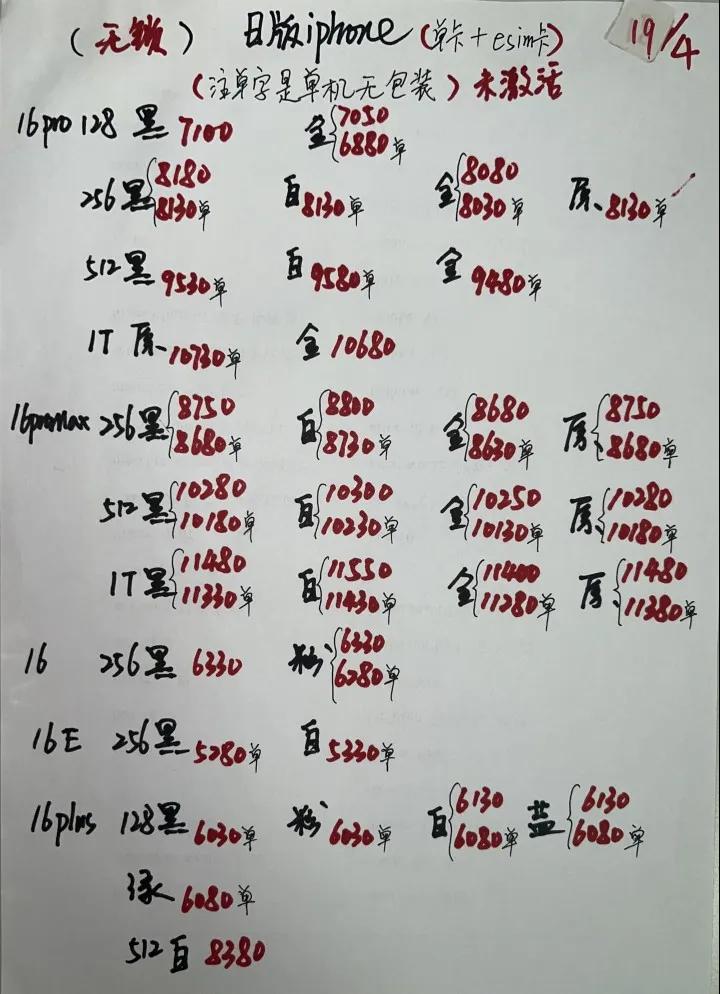 (无锁) 日版iphone (单卡+esim卡) 19/4
(注单字是单机无包装) 未激活
16pro 128 黑 7100 金{7050
6880单
256 黑{8180 白8130单 金{8080 原、8130单
8130单 8030单
512 黑 9530单 白9580单 金 9480单
1T 原、10730单 金 10680
16promax 256 黑{8750 白{8800 金{8680 原、{8750
8680单 8730单 8630单 8680单
512 黑{10280 白{10300 金{10250 原、{10280
10180单 10230单 10130单 10180单
1T 黑{11480 白{11550 金{11400 原、{11480
11330单 11430单 11280单 11380单
16 256 黑 6330 粉{6330
6280单
16E 256 黑 5280单 白5330单
16plus 128 黑 6030单 粉 6030单 白{6130 蓝{6130
6080单 6080单
绿 6080单
512 白 8380